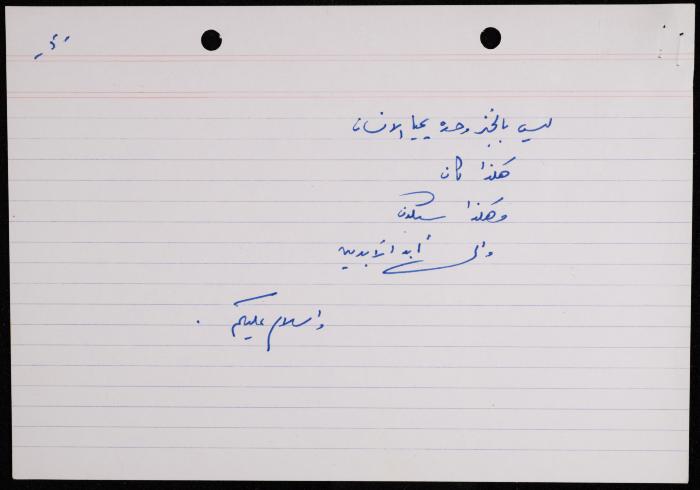 ليس بالخبز وحده يحيا الانسان
هكذا كان
وهكذا سيكون
والى أبد الآبدين
والسلام عليكم .